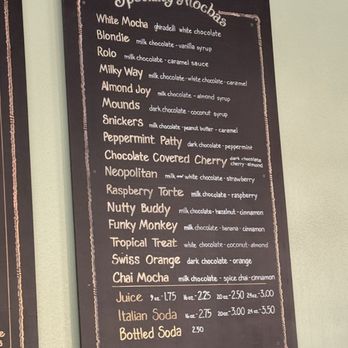 Specialty Mochas
White Mocha ghiradelli white chocolate
Blondie milk chocolate - vanilla syrup
Rolo milk chocolate - caramel sauce
Milky Way milk chocolate - white chocolate - caramel
Almond Joy milk chocolate - almond syrup
Mounds dark chocolate - coconut syrup
Snickers milk chocolate - peanut butter - caramel
Peppermint Patty dark chocolate - peppermint
Chocolate Covered Cherry dark chocolate cherry - almond
Neopolitan milk and white chocolate - strawberry
Raspberry Torte milk chocolate - raspberry
Nutty Buddy milk chocolate - hazelnut - cinnamon
Funky Monkey milk chocolate - banana - cinnamon
Tropical Treat white chocolate - coconut - almond
Swiss Orange dark chocolate - orange
Chai Mocha milk chocolate - spice chai - cinnamon
Juice 9oz - 1.75 16oz - 2.25 20oz - 2.50 24oz - 3.00
Italian Soda 16oz - 2.75 20oz - 3.00 24oz - 3.50
Bottled Soda 2.50